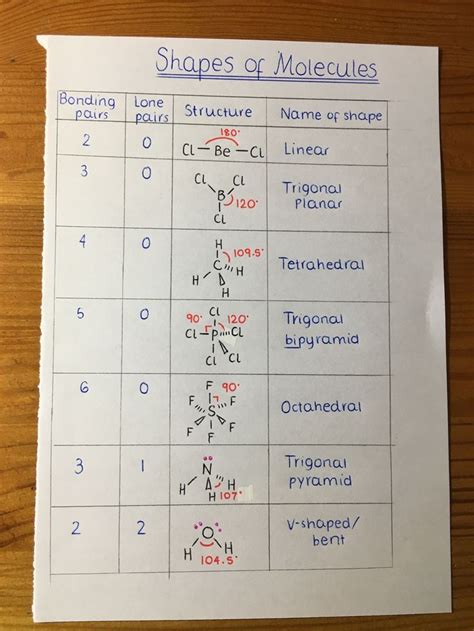 Shapes of Molecules
Bonding pairs
Lone pairs
Structure
Name of shape
2
0
180°
Cl – Be – Cl
Linear
3
0
Cl
Cl
B
120°
Cl
Trigonal
Planar
4
0
H
109.5°
C
H
H
H
Tetrahedral
5
0
Cl
90° 120°
Cl – P Cl
Cl Cl
Trigonal
bipyramid
6
0
F 90°
F F
S
F F
F
Octahedral
3
1
N
H H
H 107°
Trigonal
pyramid
2
2
O
H H
104.5°
V-shaped/
bent